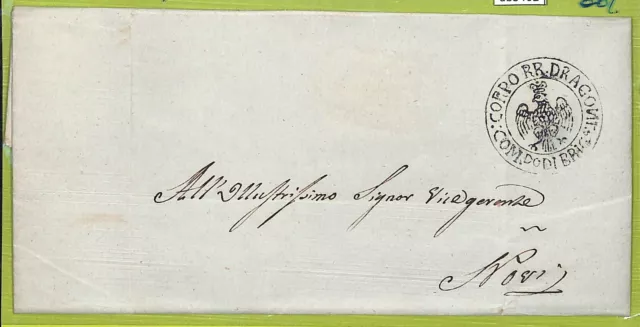 CORPO RR. DRAGONI
COM.DO DI BRIG
All'Illustrissimo Signor Vicegerente
Novi